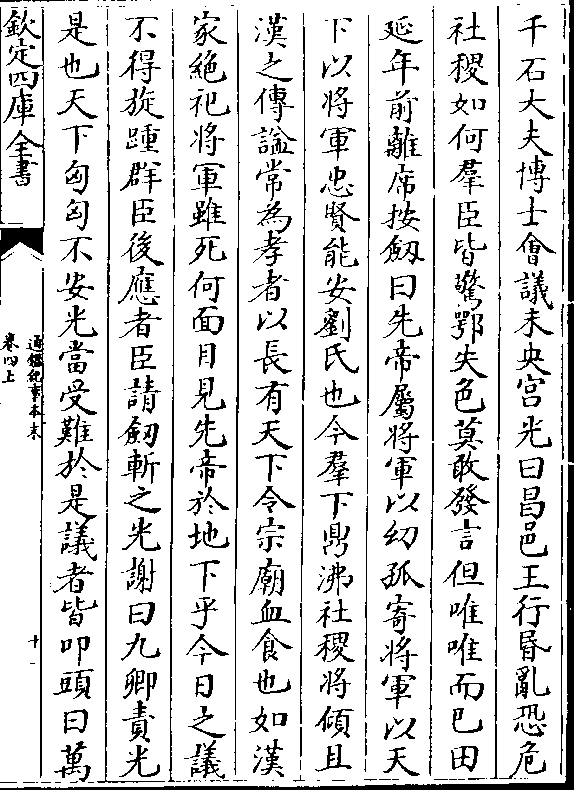 千石大夫博士會議未央宫光曰昌邑王行昬亂恐危
社稷如何羣臣皆驚鄂失色莫敢發言但唯唯而已田
延年前離席按劒曰先帝屬將軍以幼孤寄將軍以天
下以將軍忠賢能安劉氏也今羣下鼎沸社稷將傾且
漢之傳諡常為孝者以長有天下令宗廟血食也如漢
家絶祀將軍雖死何面目見先帝於地下乎今日之議
不得旋踵群臣後應者臣請劒斬之光謝曰九卿責光
是也天下匈匈不安光當受難於是議者皆叩頭曰萬
欽定四庫全書
通鑑紀事本末
卷四上
十一